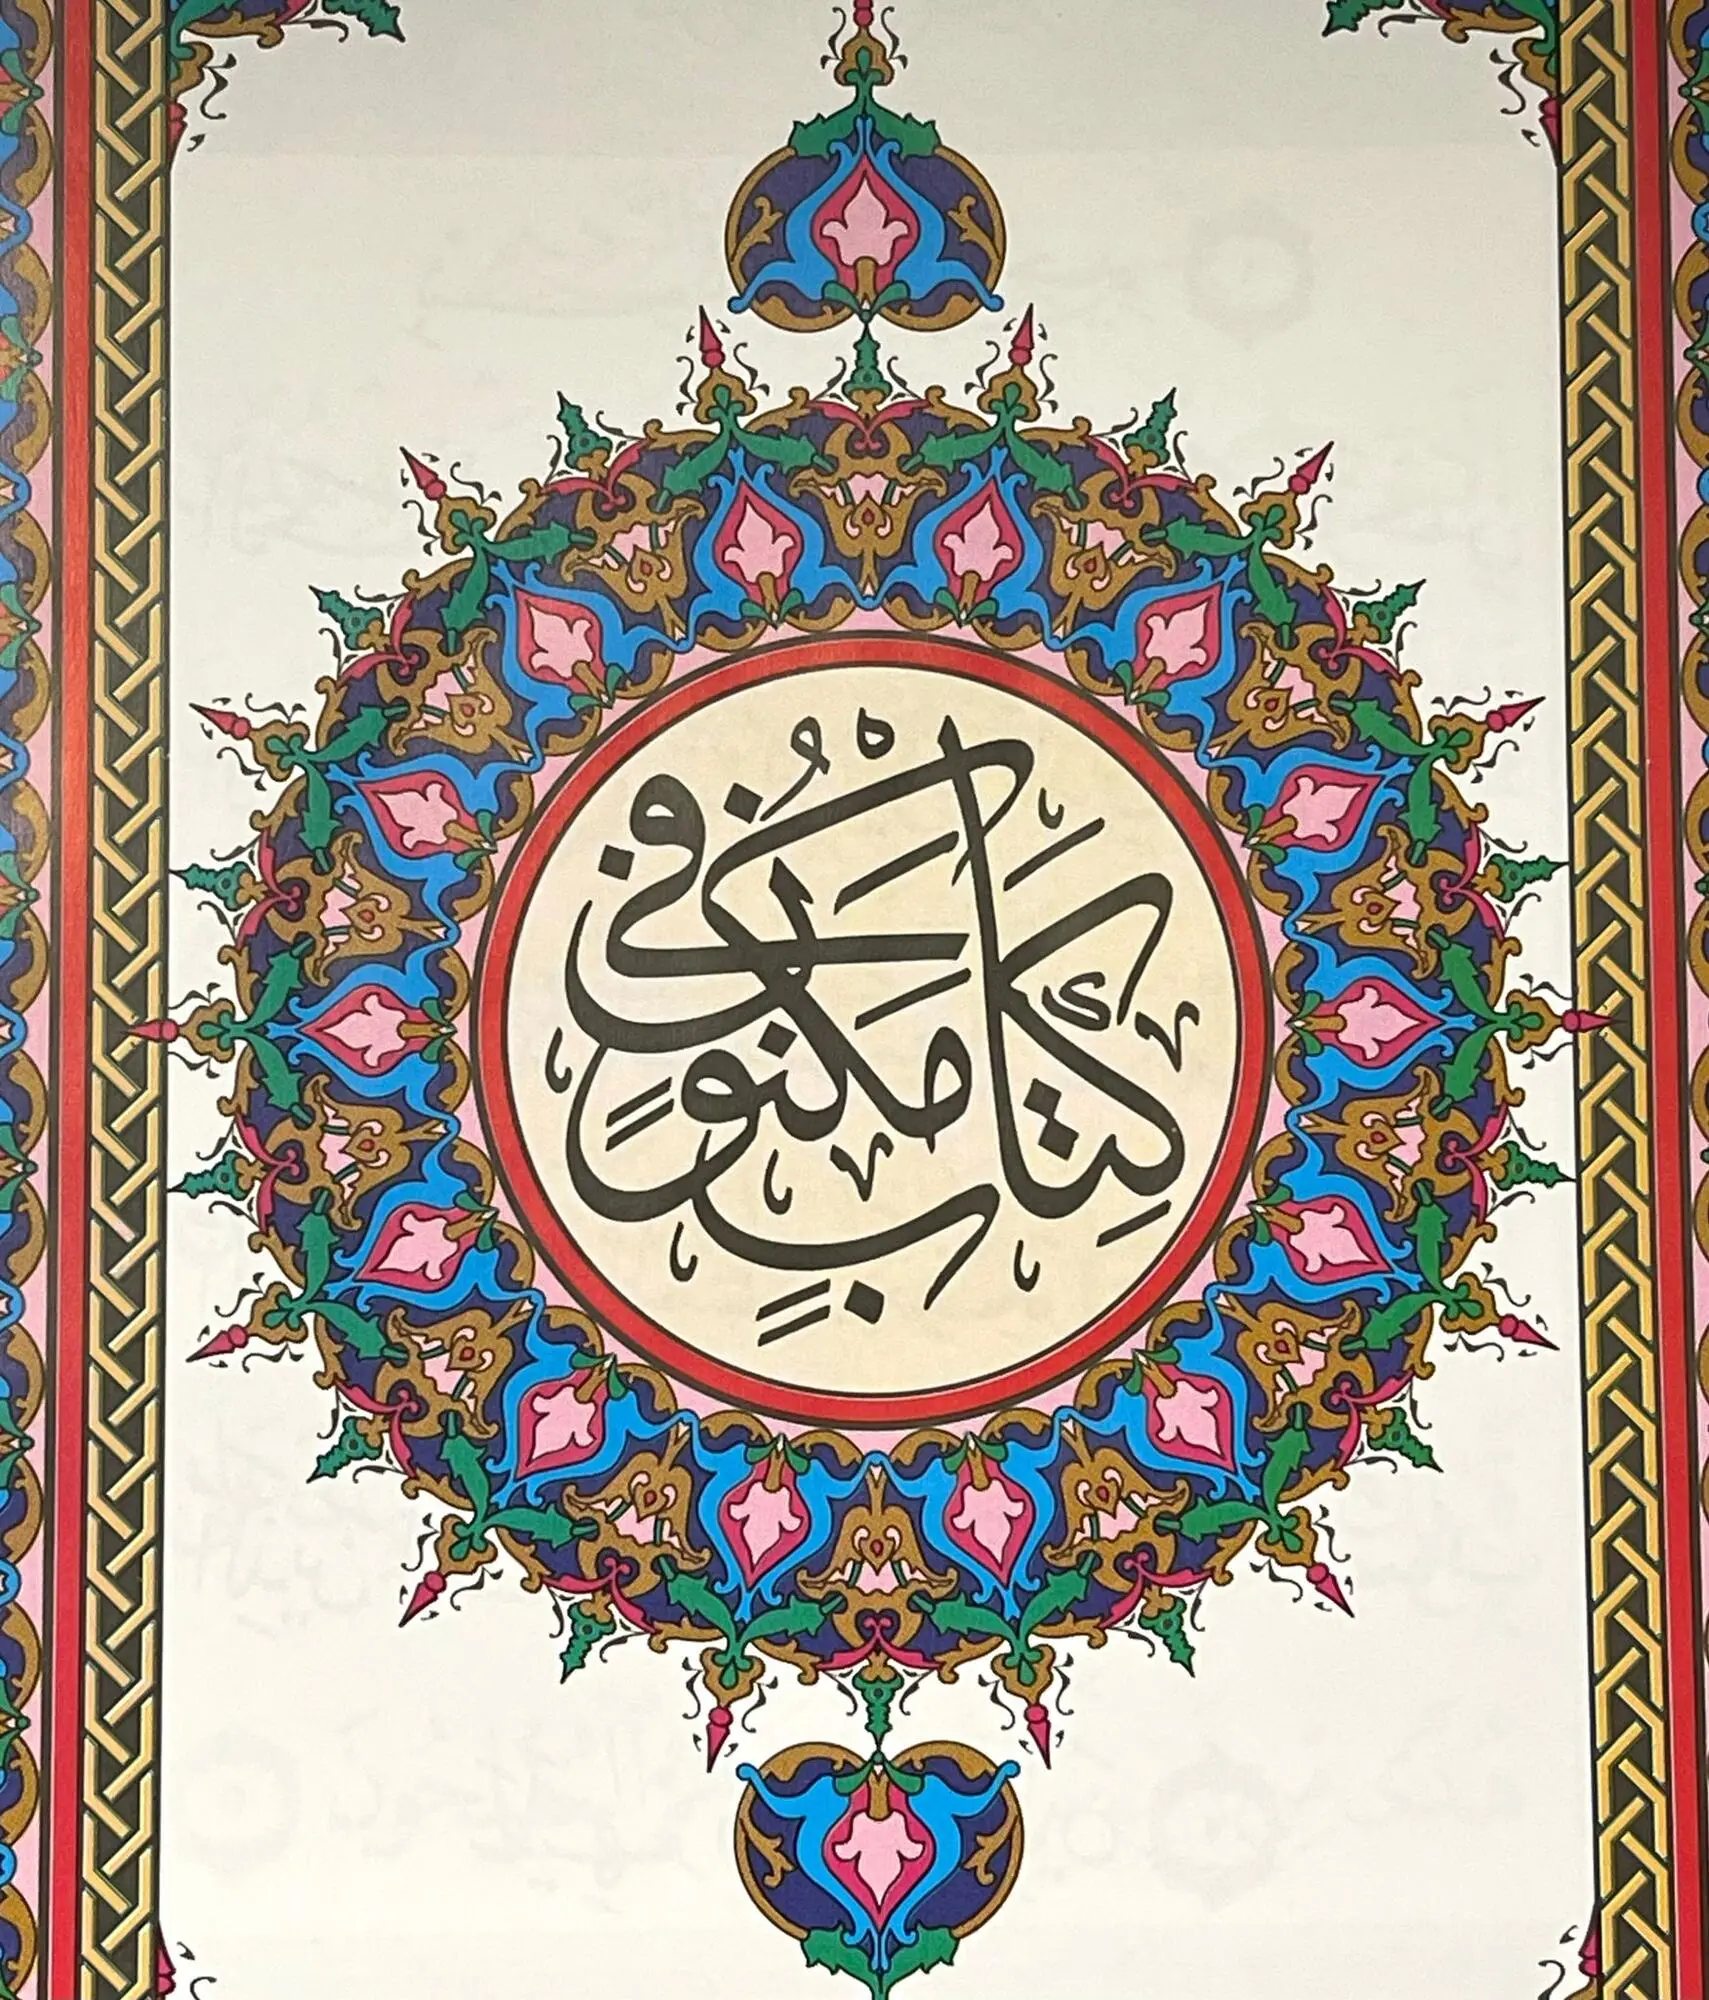 فى كِتَابٍ مَكْنُونٍ